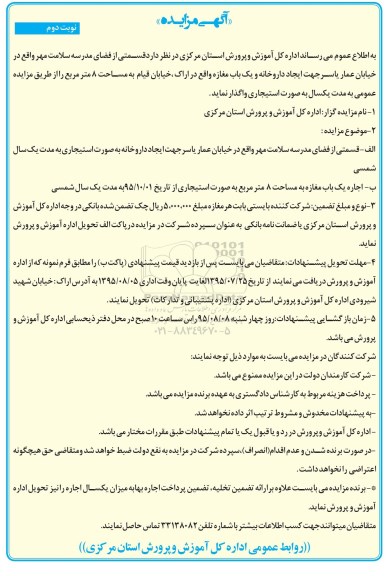 «آگهی مزایده»
نوبت دوم
به اطلاع عموم می رساند اداره کل آموزش و پرورش استان مرکزی در نظر دارد قسمتی از فضای مدرسه سلامت مهر واقع در
خیابان عمار یاسر جهت ایجاد داروخانه و یک باب مغازه واقع در اراک، خیابان قیام به مساحت ۸ متر مربع را از طریق مزایده
عمومی به مدت یکسال به صورت استیجاری واگذار نماید.
۱-نام مزایده گزار: اداره کل آموزش و پرورش استان مرکزی
۲-موضوع مزایده:
الف- قسمتی از فضای مدرسه سلامت مهر واقع در خیابان عمار یاسر جهت ایجاد داروخانه به صورت استیجاری به مدت یک سال
شمسی
ب- اجاره یک باب مغازه به مساحت ۸ متر مربع به صورت استیجاری از تاریخ ۹۵/۱۰/۰۱ به مدت یک سال شمسی
۳-نوع و مبلغ تضمین: شرکت کننده بایستی بابت هر مغازه مبلغ ۵،۰۰۰،۰۰۰ ریال چک تضمین شده بانکی در وجه اداره کل آموزش
و پرورش استان مرکزی یا ضمانت نامه بانکی به عنوان سپرده شرکت در مزایده در پاکت الف تحویل اداره آموزش و پرورش
نماید.
۴-مهلت تحویل پیشنهادات: متقاضیان می بایست پس از بازدید قیمت پیشنهادی (پاکت ب) را مطابق فرم نمونه که از اداره
آموزش و پرورش دریافت می نمایند از تاریخ ۱۳۹۵/۰۷/۲۵ لغایت پایان وقت اداری ۱۳۹۵/۰۸/۰۵ به آدرس اراک: خیابان شهید
شیرودی اداره کل آموزش و پرورش استان مرکزی (اداره پشتیبانی و تدارکات) تحویل نمایند.
۵-زمان بازگشایی پیشنهادات: روز چهار شنبه ۹۵/۰۸/۰۸ راس ساعت ۱۰ صبح در محل دفتر ذیحسابی اداره کل آموزش و
پرورش می باشد.
شرکت کنندگان در مزایده می بایست به موارد ذیل توجه نمایند:
-شرکت کارمندان دولت در این مزایده ممنوع می باشد.
- پرداخت هزینه مربوط به کارشناس دادگستری به عهده برنده مزایده می باشد.
-به پیشنهادات مخدوش و مشروط ترتیب اثر داده نخواهد شد.
-اداره کل آموزش و پرورش در رد و یا قبول یک یا تمام پیشنهادات طبق مقررات مختار می باشد.
-در صورت برنده شدن و عدم اقدام (انصراف)، سپرده شرکت در مزایده به نفع دولت ضبط خواهد شد و متقاضی حق هیچگونه
اعتراضی را نخواهد داشت.
*-برنده مزایده می بایست علاوه بر ارائه تضمین تخلیه، تضمین پرداخت اجاره بهابه میزان یکسال اجاره را نیز تحویل اداره
آموزش و پرورش نماید.
متقاضیان میتوانند جهت کسب اطلاعات بیشتر با شماره تلفن ۳۳۱۳۸۰۸۲ تماس حاصل نمایند.
((روابط عمومی اداره کل آموزش و پرورش استان مرکزی))
۰۲۱-۸۸۳۴۹۶۷۰-۵